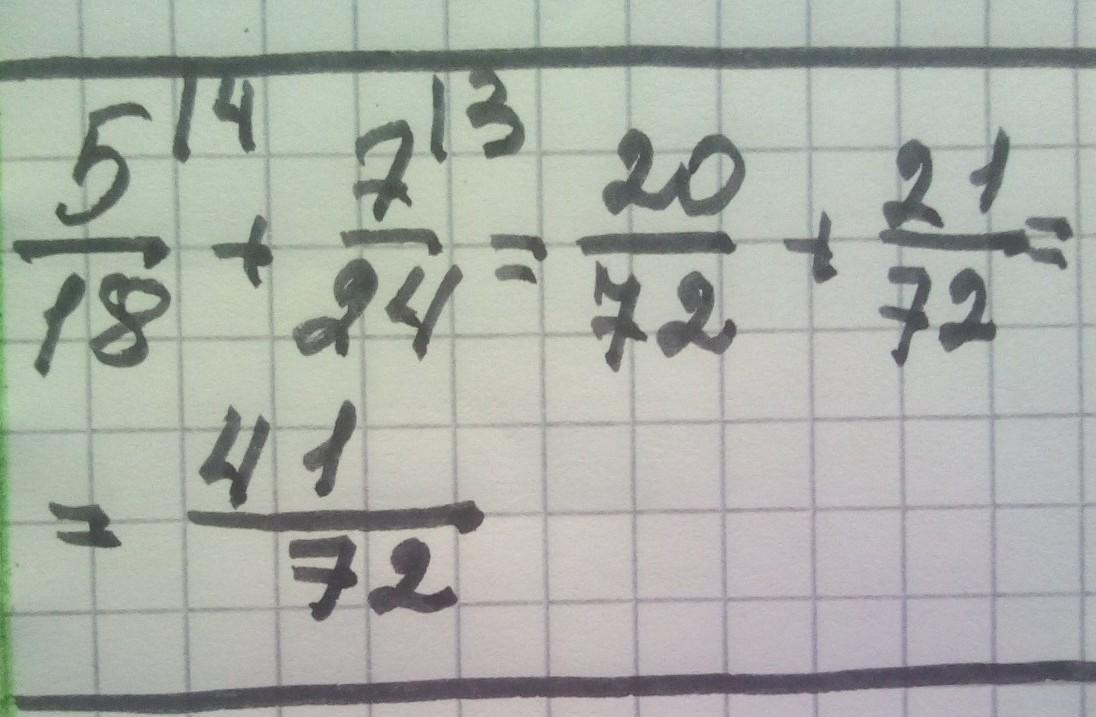 5/18 |4 + 7/24 |3 = 20/72 + 21/72 =
= 41/72